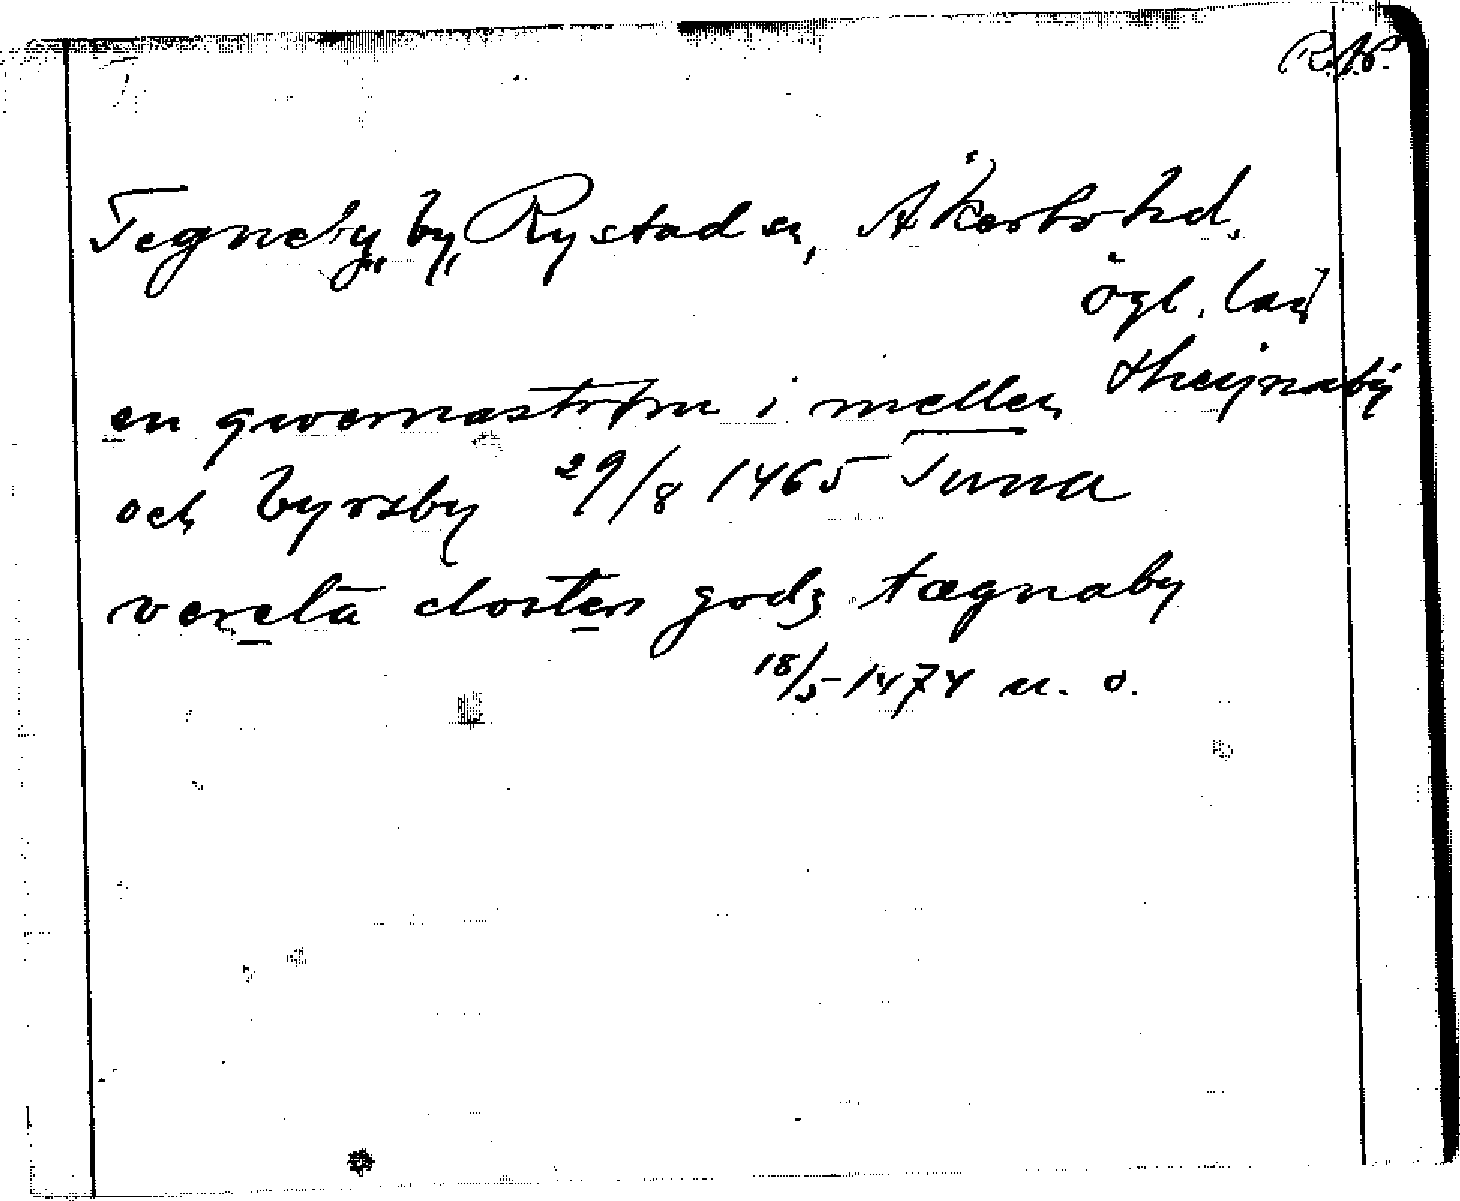 R.A.P.
Tegneby „by“ Rystad sn, Åkerbo hd,
Ögl. län
en qwernastrøm i mellen theijnabÿ
och byrsby 29/8 1465 Tuna
vereta closters godz tægnaby
18/5 1474 u. o.